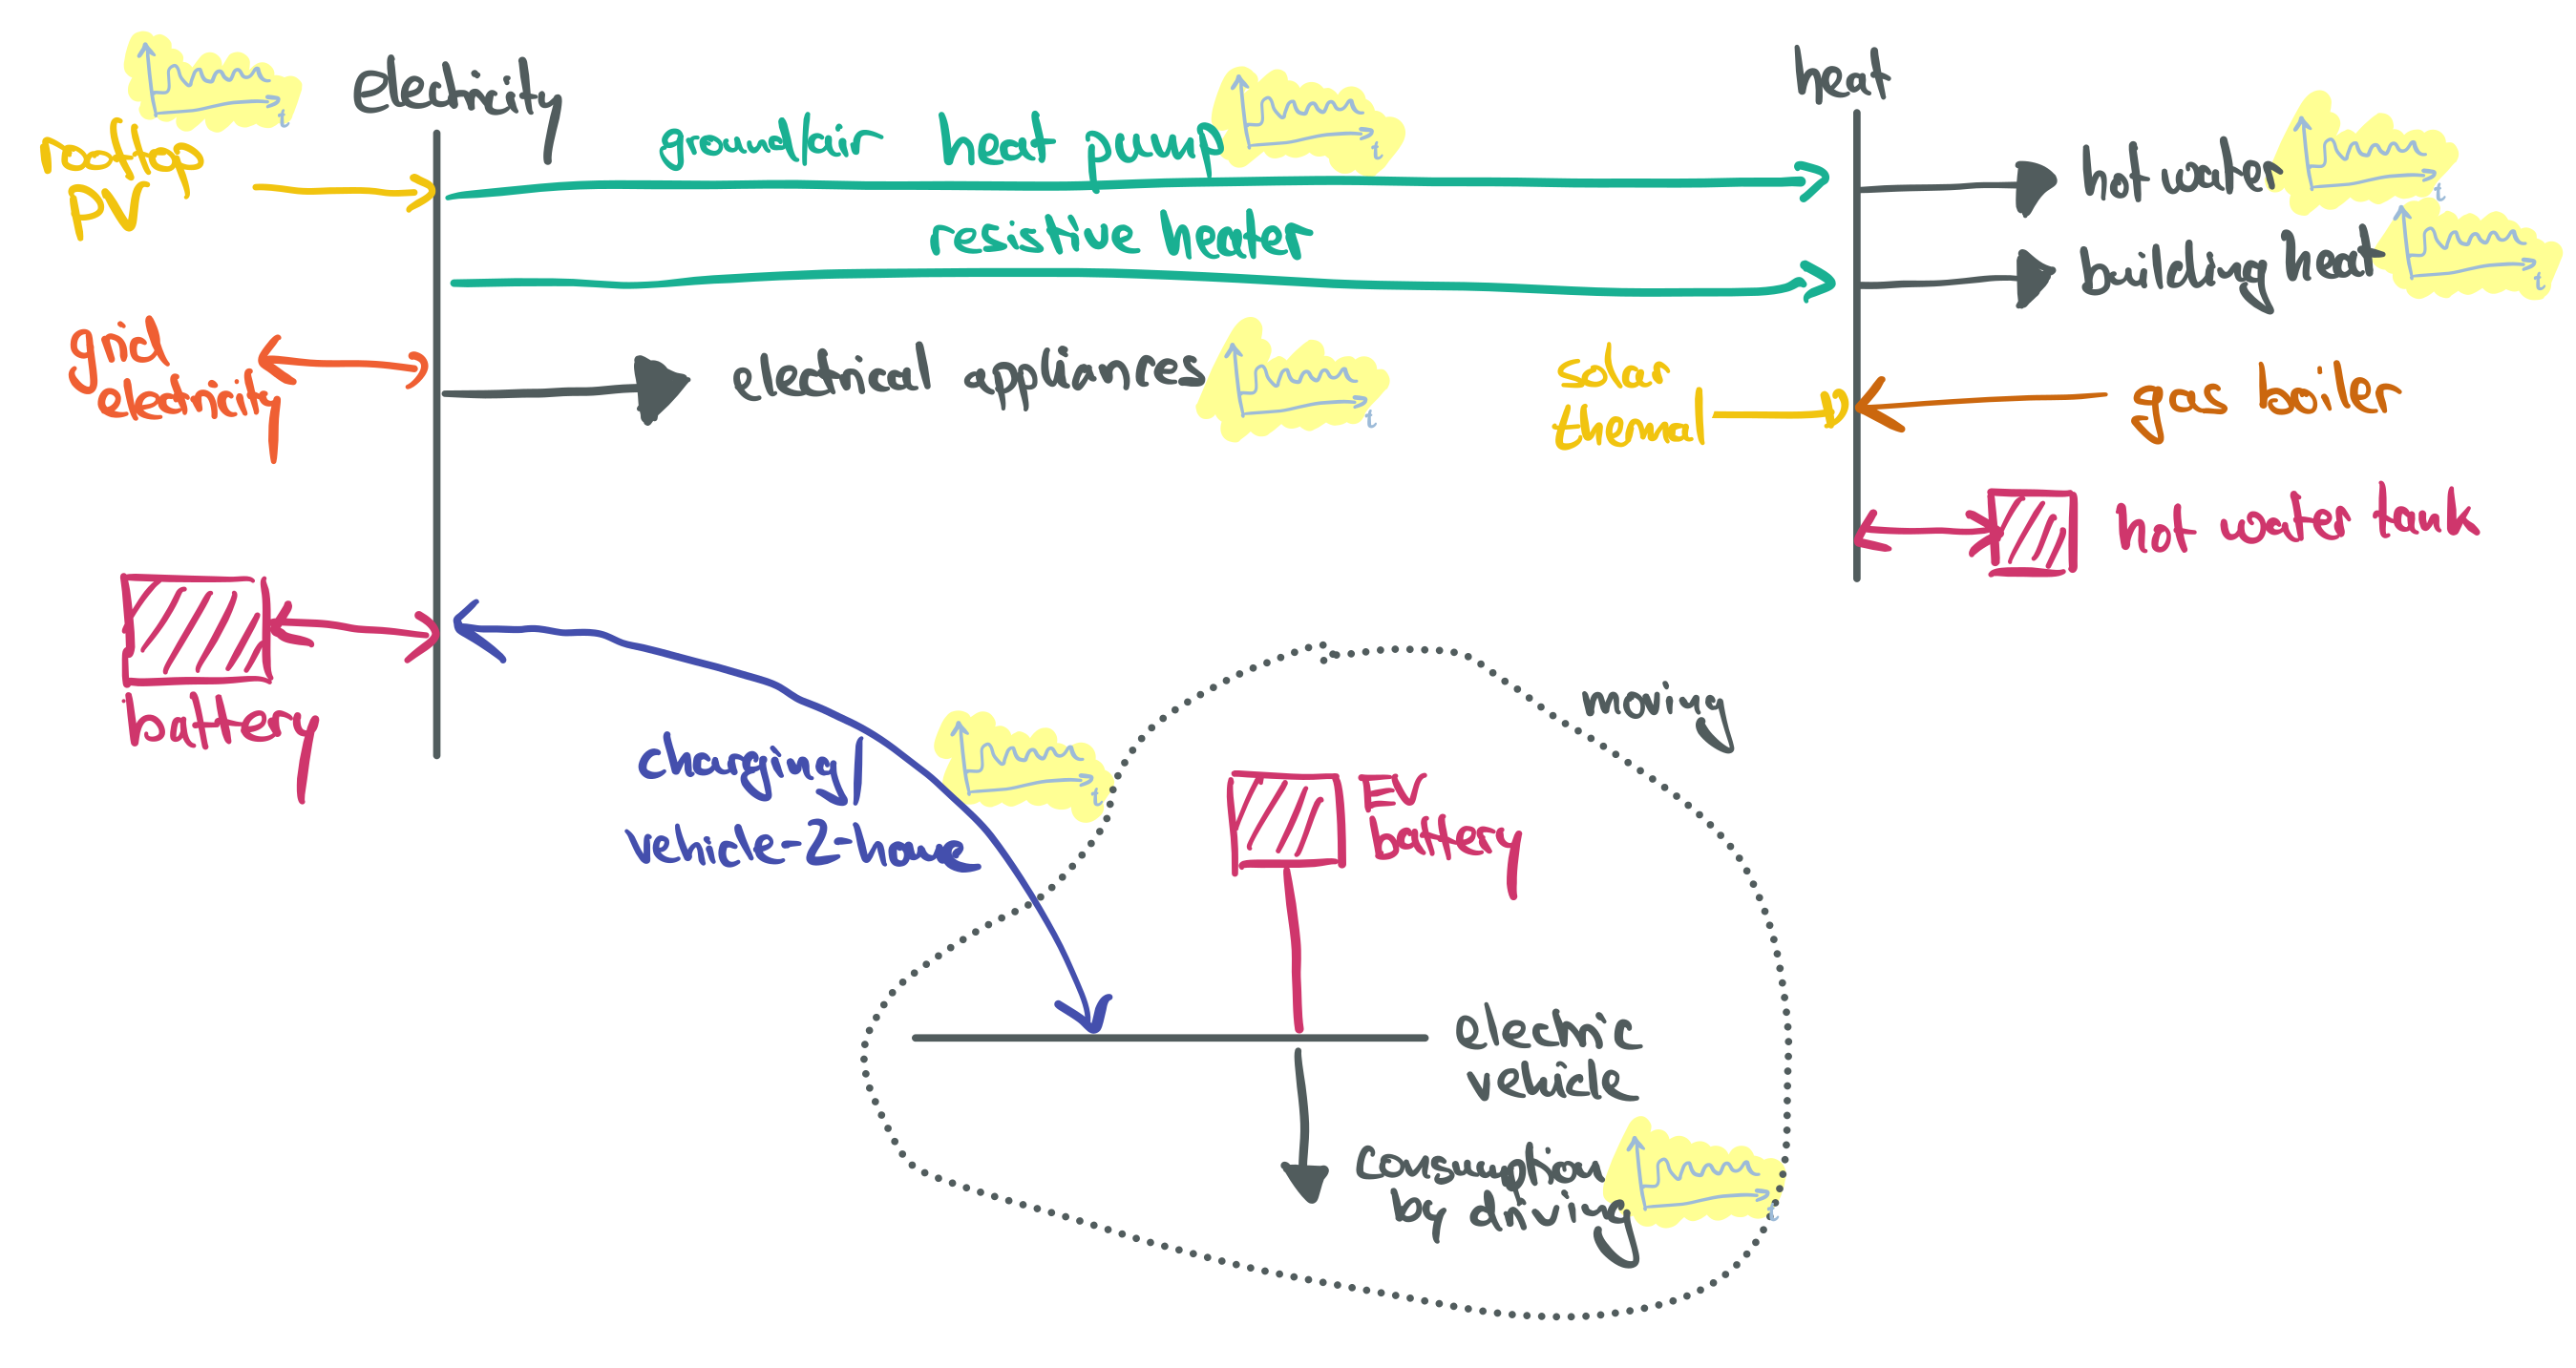 t
rooftop
PV
electricity
ground/air heat pump
t
resistive heater
heat
hot water
t
building heat
t
grid
electricity
electrical appliances
t
solar
thermal
gas boiler
hot water tank
battery
charging/
vehicle-2-home
t
moving
EV
battery
electric
vehicle
consumption
by driving
t